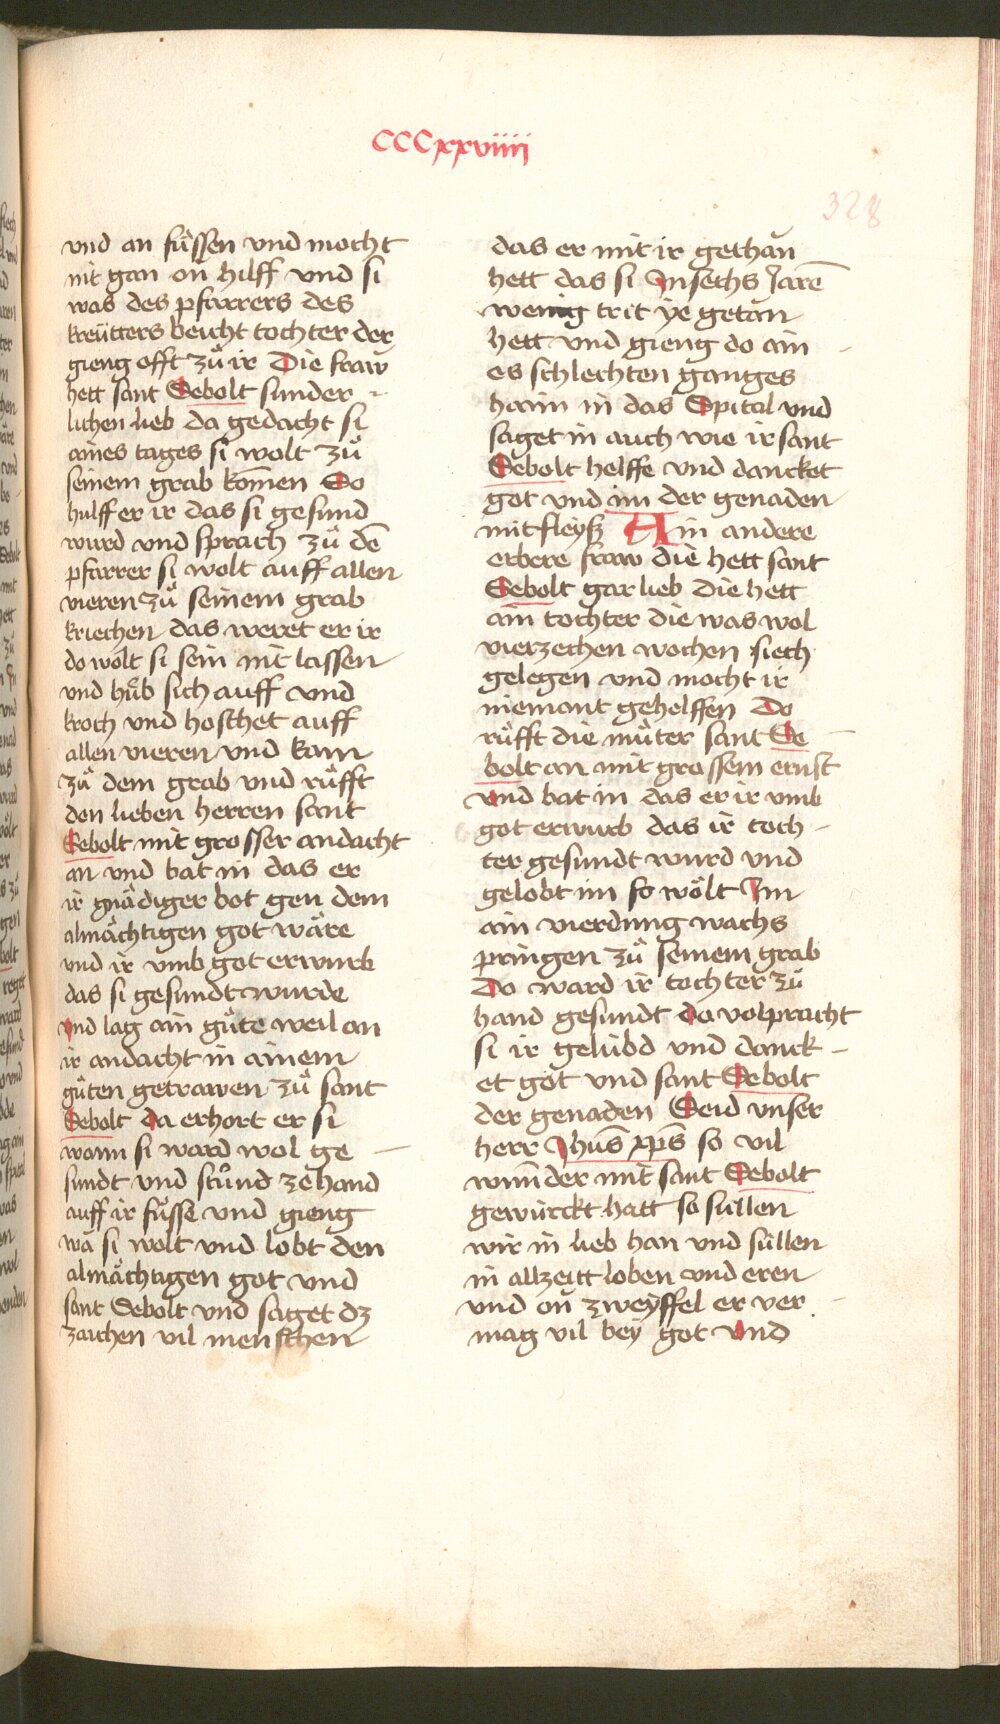 CCCxxviiii
328
vnd an fu̓ssen vnd mocht
nit gan on hilff vnd si
was des pfarrers des
kreütters beicht tochter der
gieng offt zů ir Die fraw
hett sant Sebolt sunder -
lichen lieb da gedacht si
aines tages si wolt zů
seinem grab kom̄en So
hulff er ir das si gesund
wurd vnd sprach zů dē
pfarrer si wolt auff allen
vieren zů seinem grab
kriechen das weret er ir
do wolt si sein nit lassen
vnd hůb sich auff vnd
kroch vnd hoschet auff
allen vieren vnd kam
zů dem grab vnd růfft
den lieben herren sant
Sebolt mit grosser andacht
an vnd bat in das er
ir gnädiger bot gen dem
almächtigen got wäre
vnd ir vmb got erwurb
das si gesundt wurde
vnd lag ain gůte weil an
ir andacht in ainem
gůten getrawen zů sant
Sebolt da erhort er si
wann si ward wol ge -
sundt vnd stůnd zehand
auff ir füsse vnd gieng
wa si wolt vnd lobt den
almächtigen got vnd
sant Sebolt vnd saget dz
zaichen vil menschen
das er mit ir gethan
hett das si Jnsechs Jarē
wenig trit ye getan
hett vnd gieng do ain -
es schlechten ganges
haim in das Spital vnd
saget in auch wie ir sant
Sebolt helffe vnd dancket
got vnd im der genaden
mit fleysz Ain andere
erbere fraw die hett sant
Sebolt gar lieb die hett
ain tochter die was wol
vierzechen wochen siech
gelegen vnd mocht ir
niemant gehelffen Do
růfft die můter sant Se -
bolt an mit grossem ernst
vnd bat in das er ir vmb
got erwurb das ir toch -
ter gesundt wurd vnd
gelobt im so wölt Jm
ain vierdung wachs
pringen zů seinem grab
Do ward ir tochter zů
hand gesundt da volpracht
si ir gelübd vnd danck -
et got vnd sant Sebolt
der genaden Seid vnser
herr Jhūs xp̄s so vil
wun̄der mit sant Sebolt
gewürckt hatt so süllen
wir in lieb han vnd süllen
in allzeitt loben vnd eren
vnd on zweyffel er ver -
mag vil bey got vnd